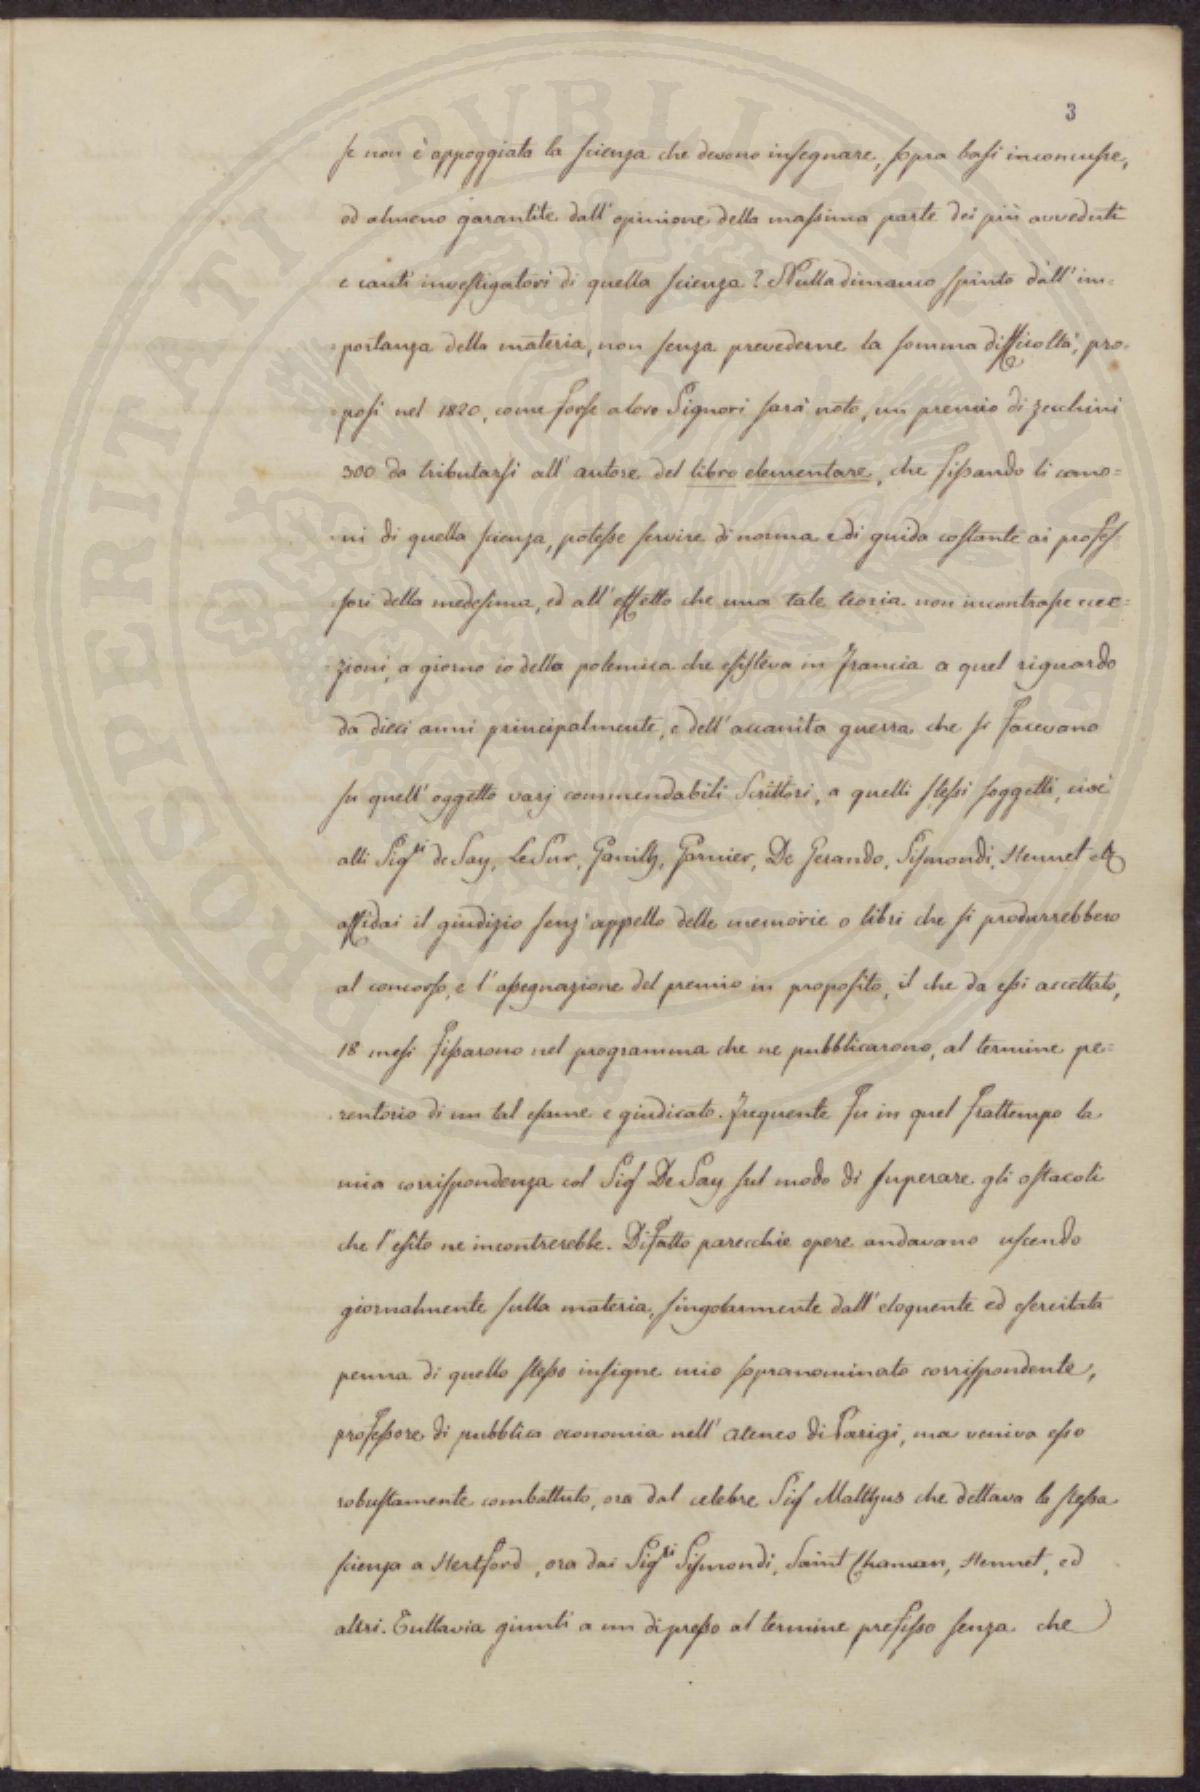 3
se non è appoggiata la scienza che devono insegnare, sopra basi inconcusse,
od almeno garantite dall' opinione della massima parte dei più avveduti
e cauti investigatori di quella scienza? Nulladimanco spinto dall' im=
=portanza della materia, non senza prevederne la somma difficoltà, pro=
=posi nel 1820, come forse a loro Signori sarà noto, un premio di zecchini
300 da tributarsi all' autore del libro elementare, che fissando li cano=
=ni di quella scienza, potesse servire di norma e di guida costante ai profes=
=sori della medesima, ed all' effetto che una tale teoria non incontrasse ecce=
=zioni, a giorno io della polemica che esisteva in Francia a quel riguardo
da dieci anni principalmente, e dell' accanita guerra che si facevano
su quell' oggetto varj commendabili Scrittori, a quelli stessi soggetti, cioè
alli Sigri de Say, LeSur, Ganilh, Garnier, De Gerando, Sismondi, Hennet etc
affidai il giudizio senz' appello delle memorie o libri che si produrrebbero
al concorso, e l' assegnazione del premio in proposito, il che da essi accettato,
18 mesi fissarono nel programma che ne pubblicarono, al termine pe=
=rentorio di un tal esame e giudicato. Frequente fu in quel frattempo la
mia corrispondenza col Sig De Say sul modo di superare gli ostacoli
che l' esito ne incontrerebbe. Difatto parecchie opere andavano uscendo
giornalmente sulla materia, singolarmente dall' eloquente ed esercitata
penna di quello stesso insigne mio sopranominato corrispondente,
professore di pubblica economia nell' ateneo di Parigi, ma veniva esso
robustamente combattuto, ora dal celebre Sig Malthus che dettava la stessa
scienza a Hertford, ora dai Sigri Sismondi, Saint Chaman, Hennet, ed
altri. Tuttavia giunti a un di presso al termine prefisso senza che
PROSPERITATI PUBLICAE